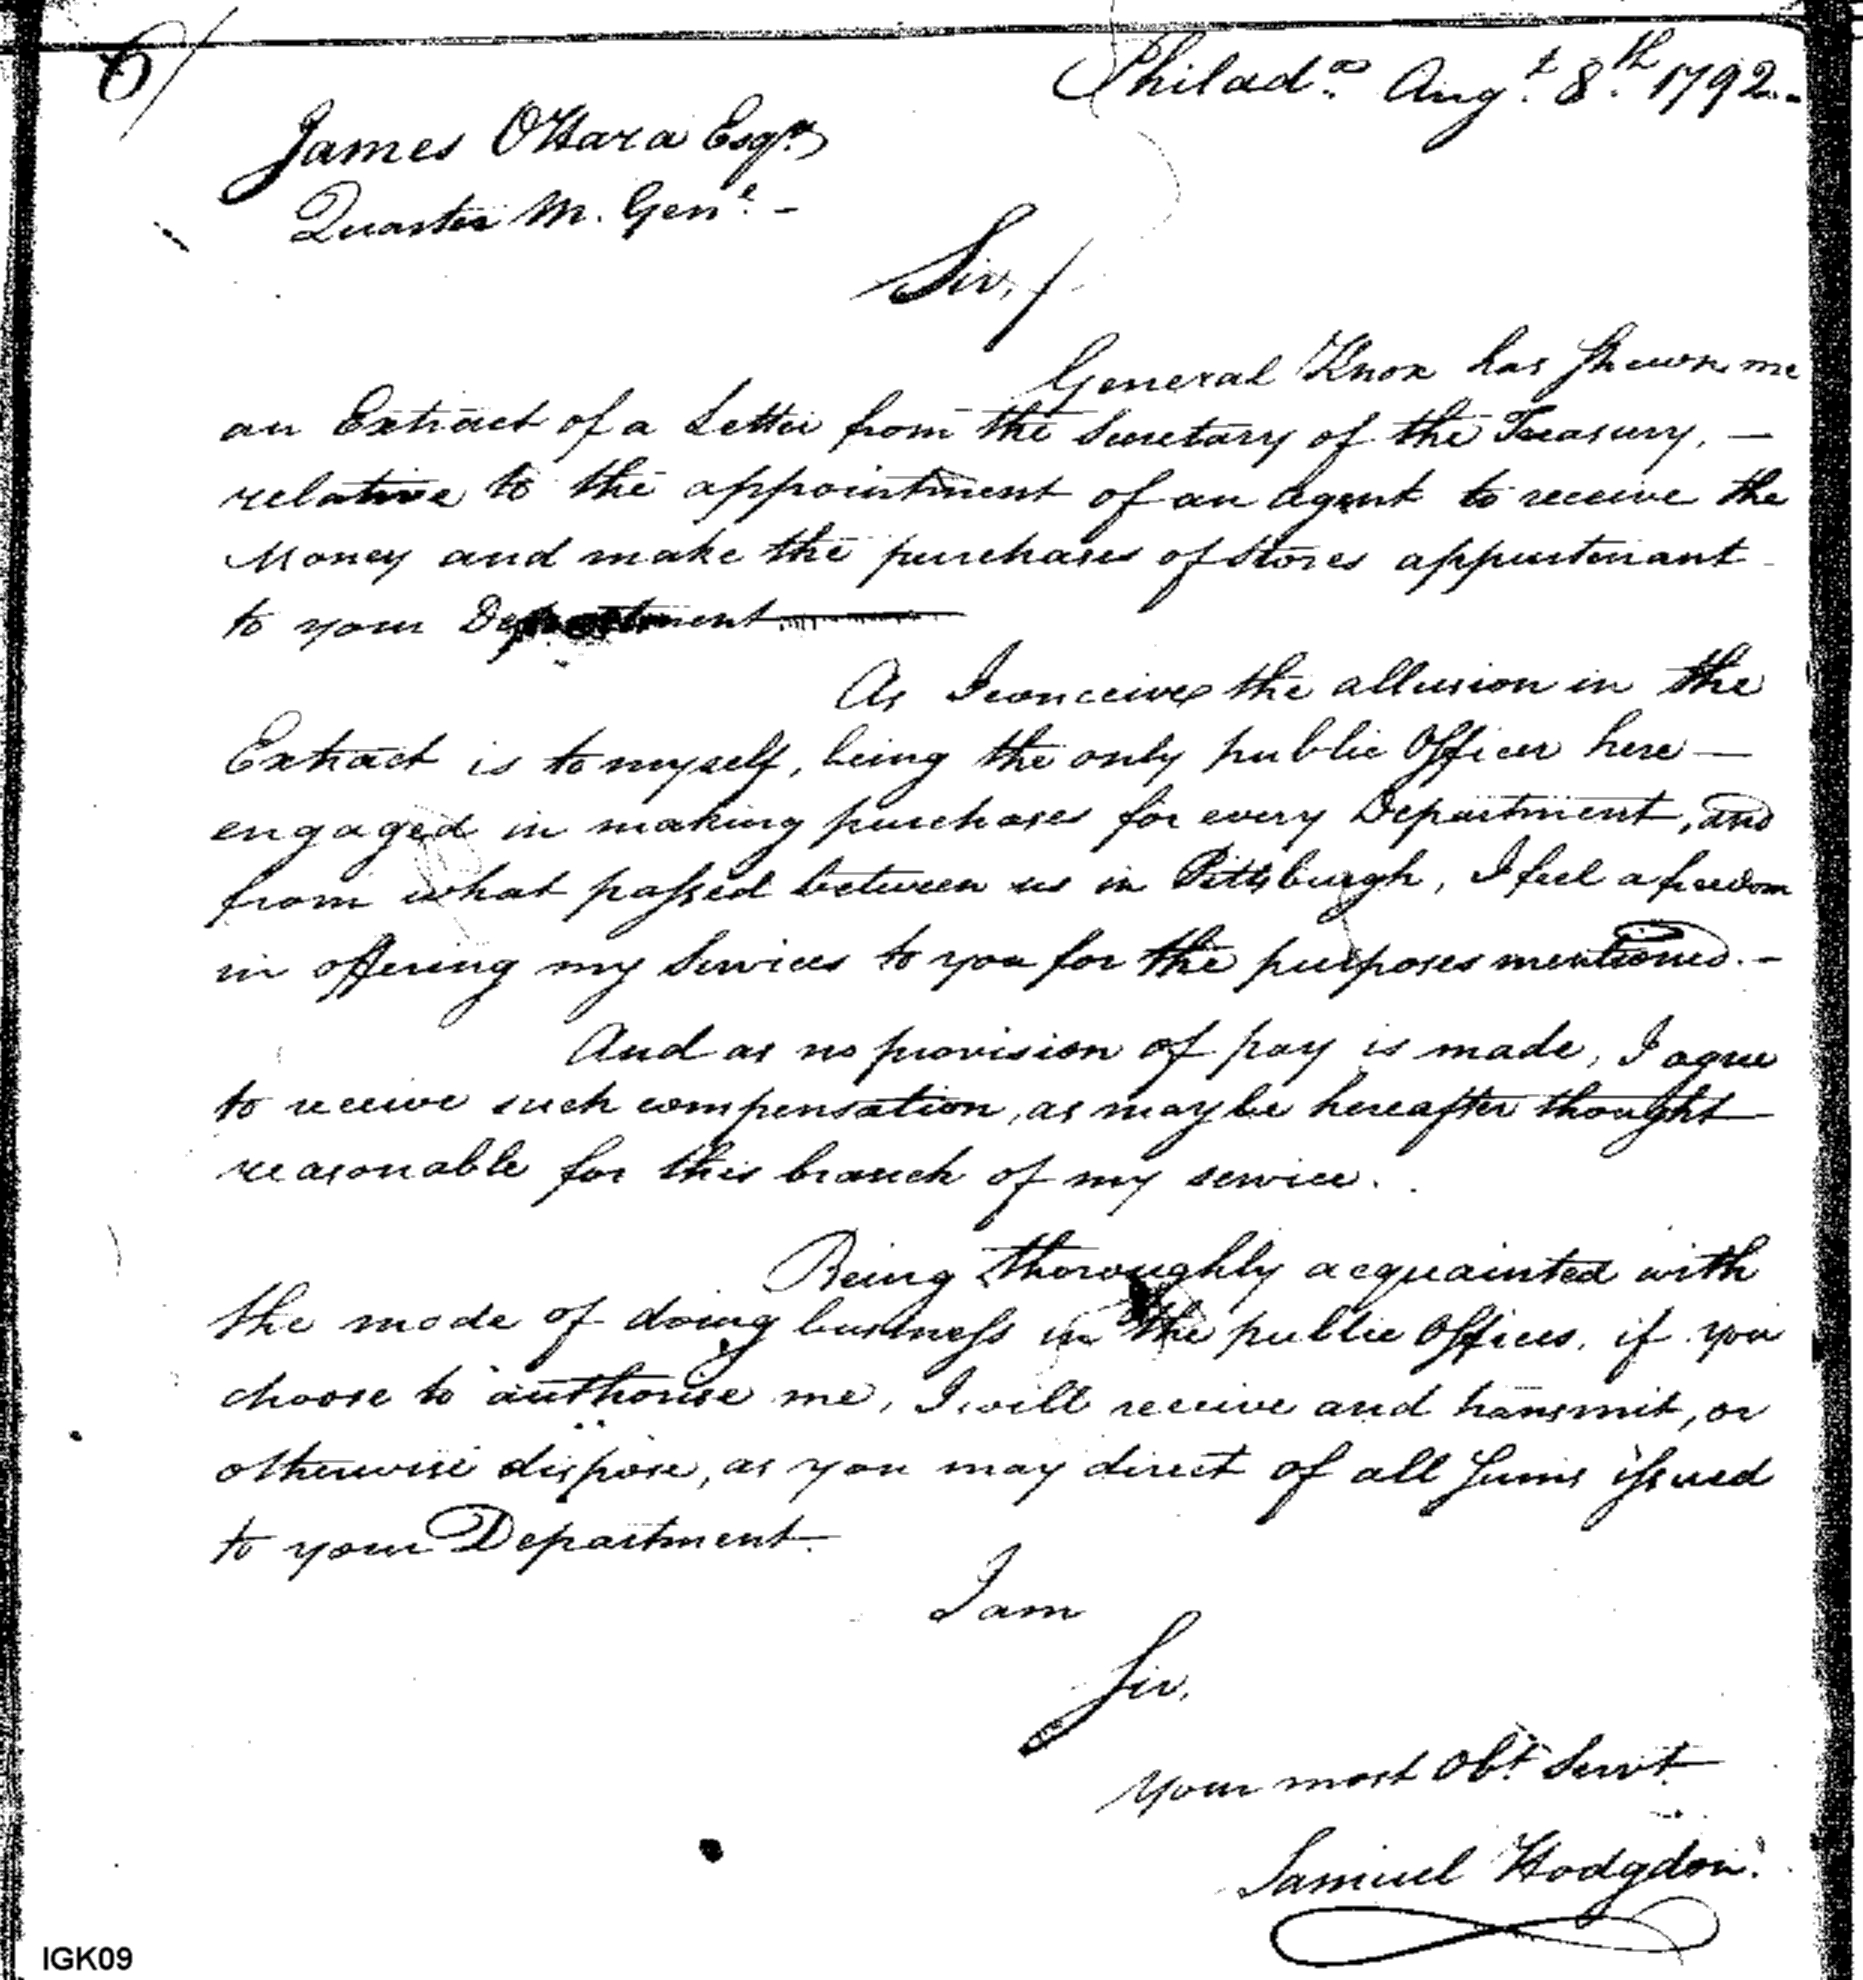 6/
Philad.ᵃ Aug.ᵗ 8.ᵗʰ 1792.
James OHara Esqʳ
Quarter M. Gen.ˡ -
Sir,/
General Knox has shewn me
an Extract of a Letter from the Secretary of the Treasury, —
relative to the appointment of an Agent to receive the
Money and make the purchases of Stores appurtenant
to your Department
As I conceive the allusion in the
Extract is to myself, being the only public Officer here —
engaged in making purchases for every Department, and
from what passed between us in Pittsburgh, I feel a freedom
in offering my Services to you for the purposes mentioned. -
And as no provision of pay is made, I agree
to receive such compensation, as may be hereafter thought
reasonable for this branch of my service.
Being thoroughly acquainted with
the mode of doing business in the public Offices, if you
choose to authorise me, I will receive and transmit, or
otherwise dispose, as you may direct of all Sums issued
to your Department.
I am
Sir,
Your most Obᵗ Servt.
Samuel Hodgdon.
IGK09